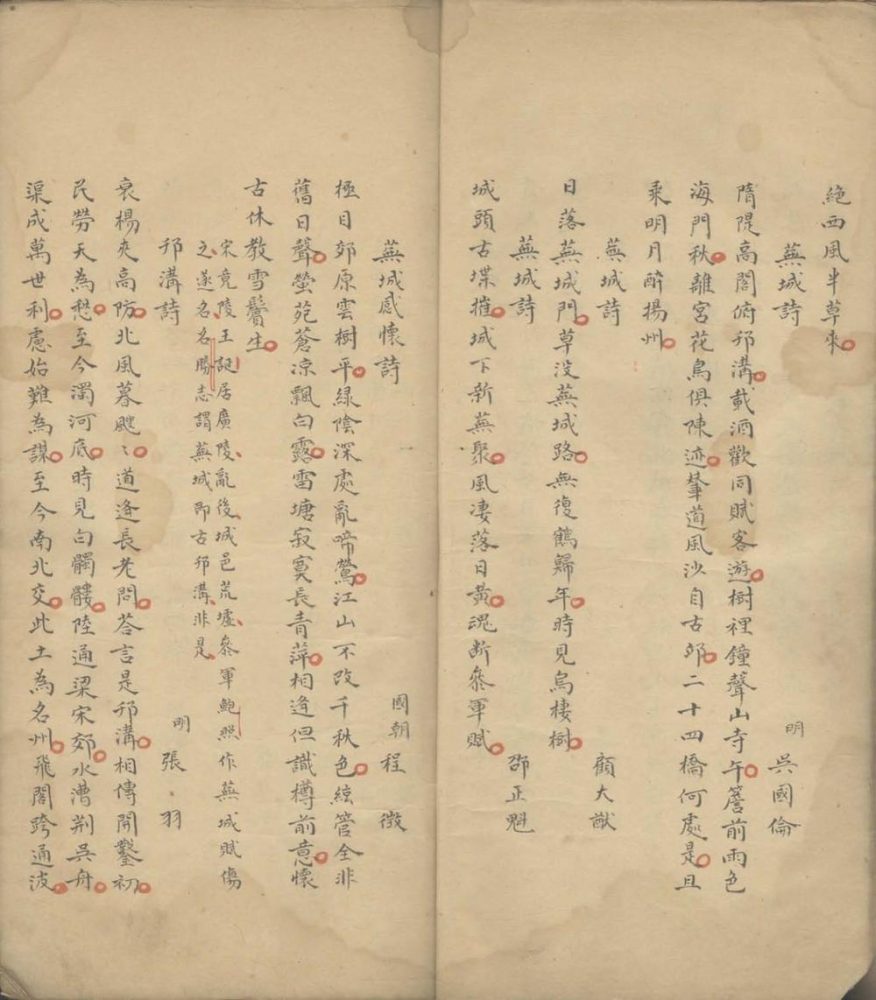 絶西風半草來
蕪城詩
明 吳國倫
隋隄高閣俯邗溝載酒歡同賦客遊樹裡鐘聲山寺午簷前雨色
海門秋離宮花鳥俱陳迹輦道風沙自古郊二十四橋何處是且
乘明月醉揚州
蕪城詩
顧大猷
日落蕪城門草没蕪城路無復鶴歸年時見烏棲樹
蕪城詩
邵正魁
城頭古堞摧城下新蕪聚風淒落日黃魂斷叅軍賦
蕪城感懷詩
國朝 程徵
極目郊原雲樹平綠陰深處亂啼鶯江山不改千秋色絃管全非
舊日聲螢苑蒼凉飄白露雷塘寂寞長青萍相逢但識樽前意懷
古休教雪鬢生
宋竟陵王誕居廣陵亂後城邑荒墟叅軍鮑照作蕪城賦傷
之遂名名勝志謂蕪城即古邗溝非是
邗溝詩
明 張羽
衰楊夾高防北風暮颼〻道逢長老問答言是邗溝相傳開鑿初
民勞天為愁至今濁河底時見白髑髏陸通梁宋郊水漕荆吳舟
渠成萬世利慮始難為謀至今南北交此土為名州飛閣跨通波